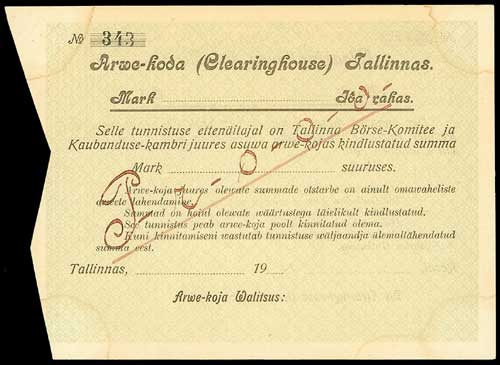 № 343
Arwe-koda (Clearinghouse) Tallinnas.
Mark Iba rahas.
Selle tunnistuse ettenäitajal on Tallinna Börse-Komitee ja
Kaubanduse-kambri juures asuwa arwe-kojas kindlustatud summa
Mark suuruses.
Arwe-koja juures olewate summade otstarbe on ainult omawaheliste
arwete lahendamine.
Summad on hoiul olewate wäärtustega täielikult kindlustatud.
See tunnistus peab arwe-koja poolt kinnitatud olema.
Kuni kinnitamiseni wastutab tunnistuse wäljaandja ülemallähendatud
summa eest.
Tallinnas, 19
Arwe-koja Walitsus: